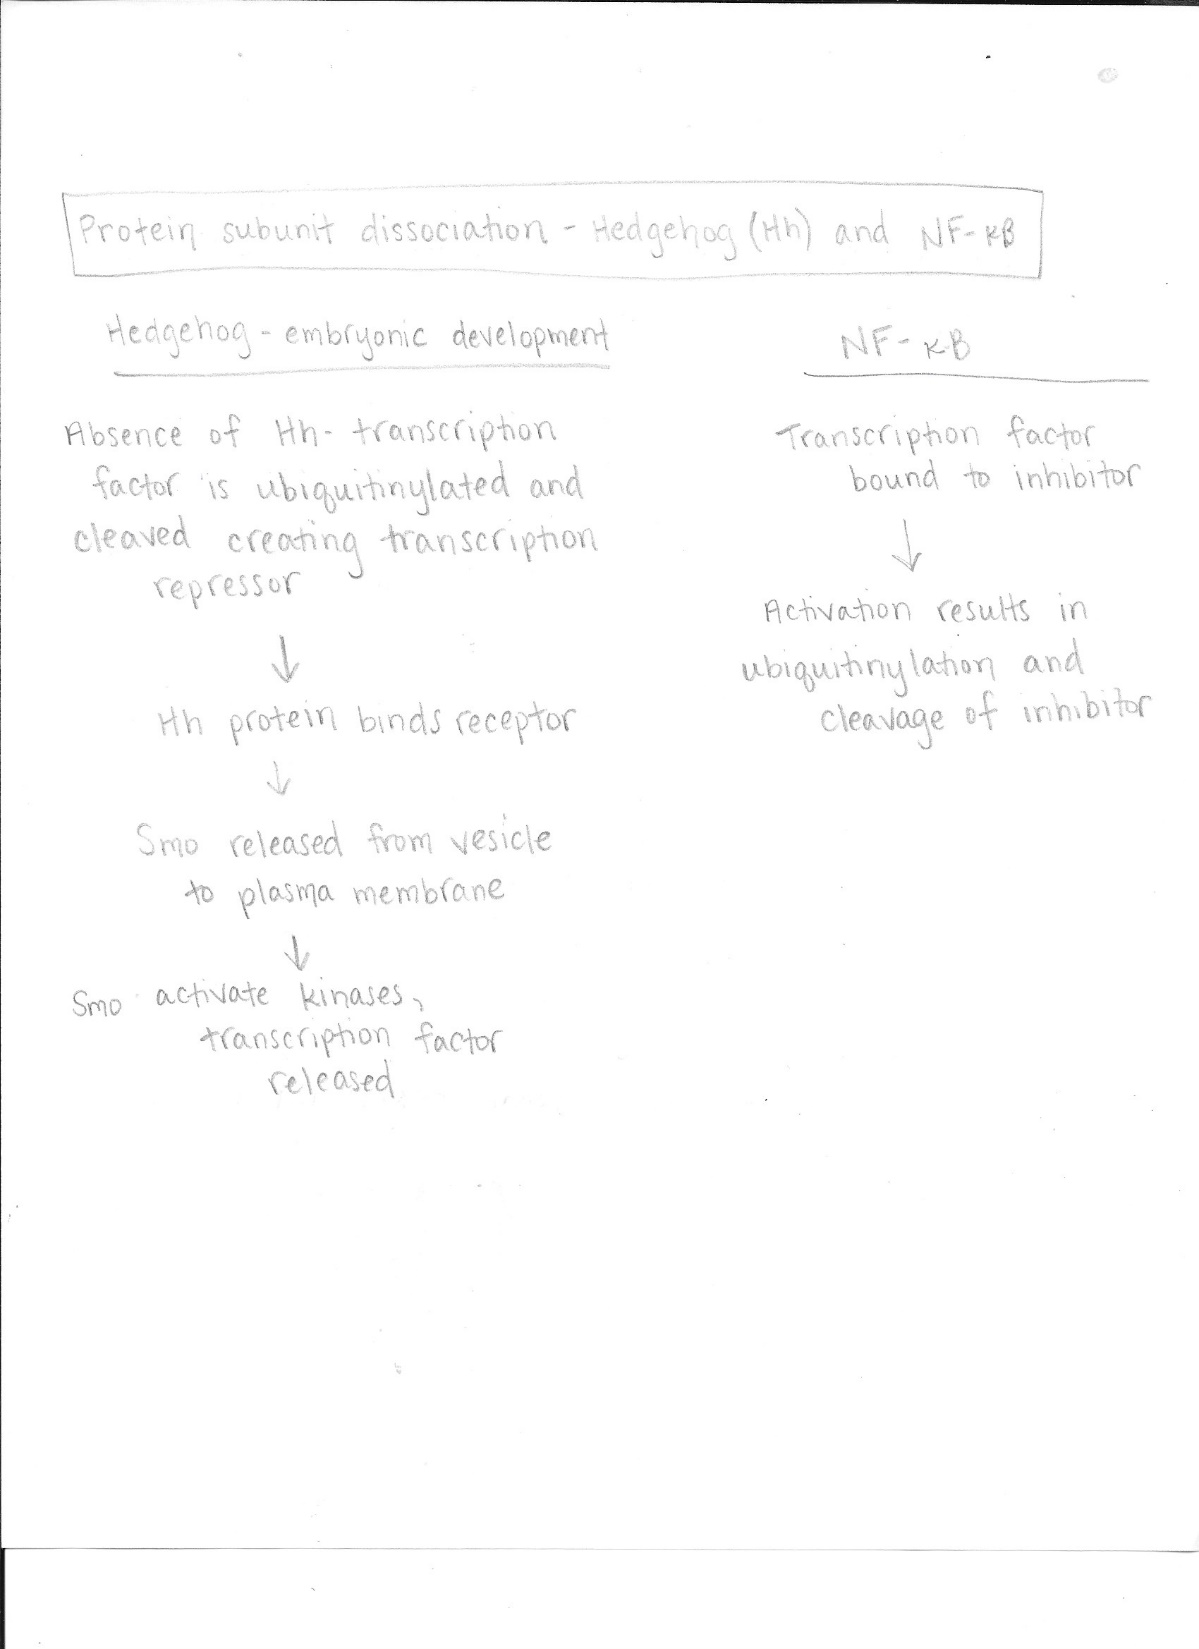 Protein subunit dissociation - Hedgehog (Hh) and NF-κB
Hedgehog - embryonic development
Absence of Hh- transcription
factor is ubiquitinylated and
cleaved creating transcription
repressor
↓
Hh protein binds receptor
↓
Smo released from vesicle
to plasma membrane
↓
Smo activate kinases,
transcription factor
released
NF-κB
Transcription factor
bound to inhibitor
↓
Activation results in
ubiquitinylation and
cleavage of inhibitor